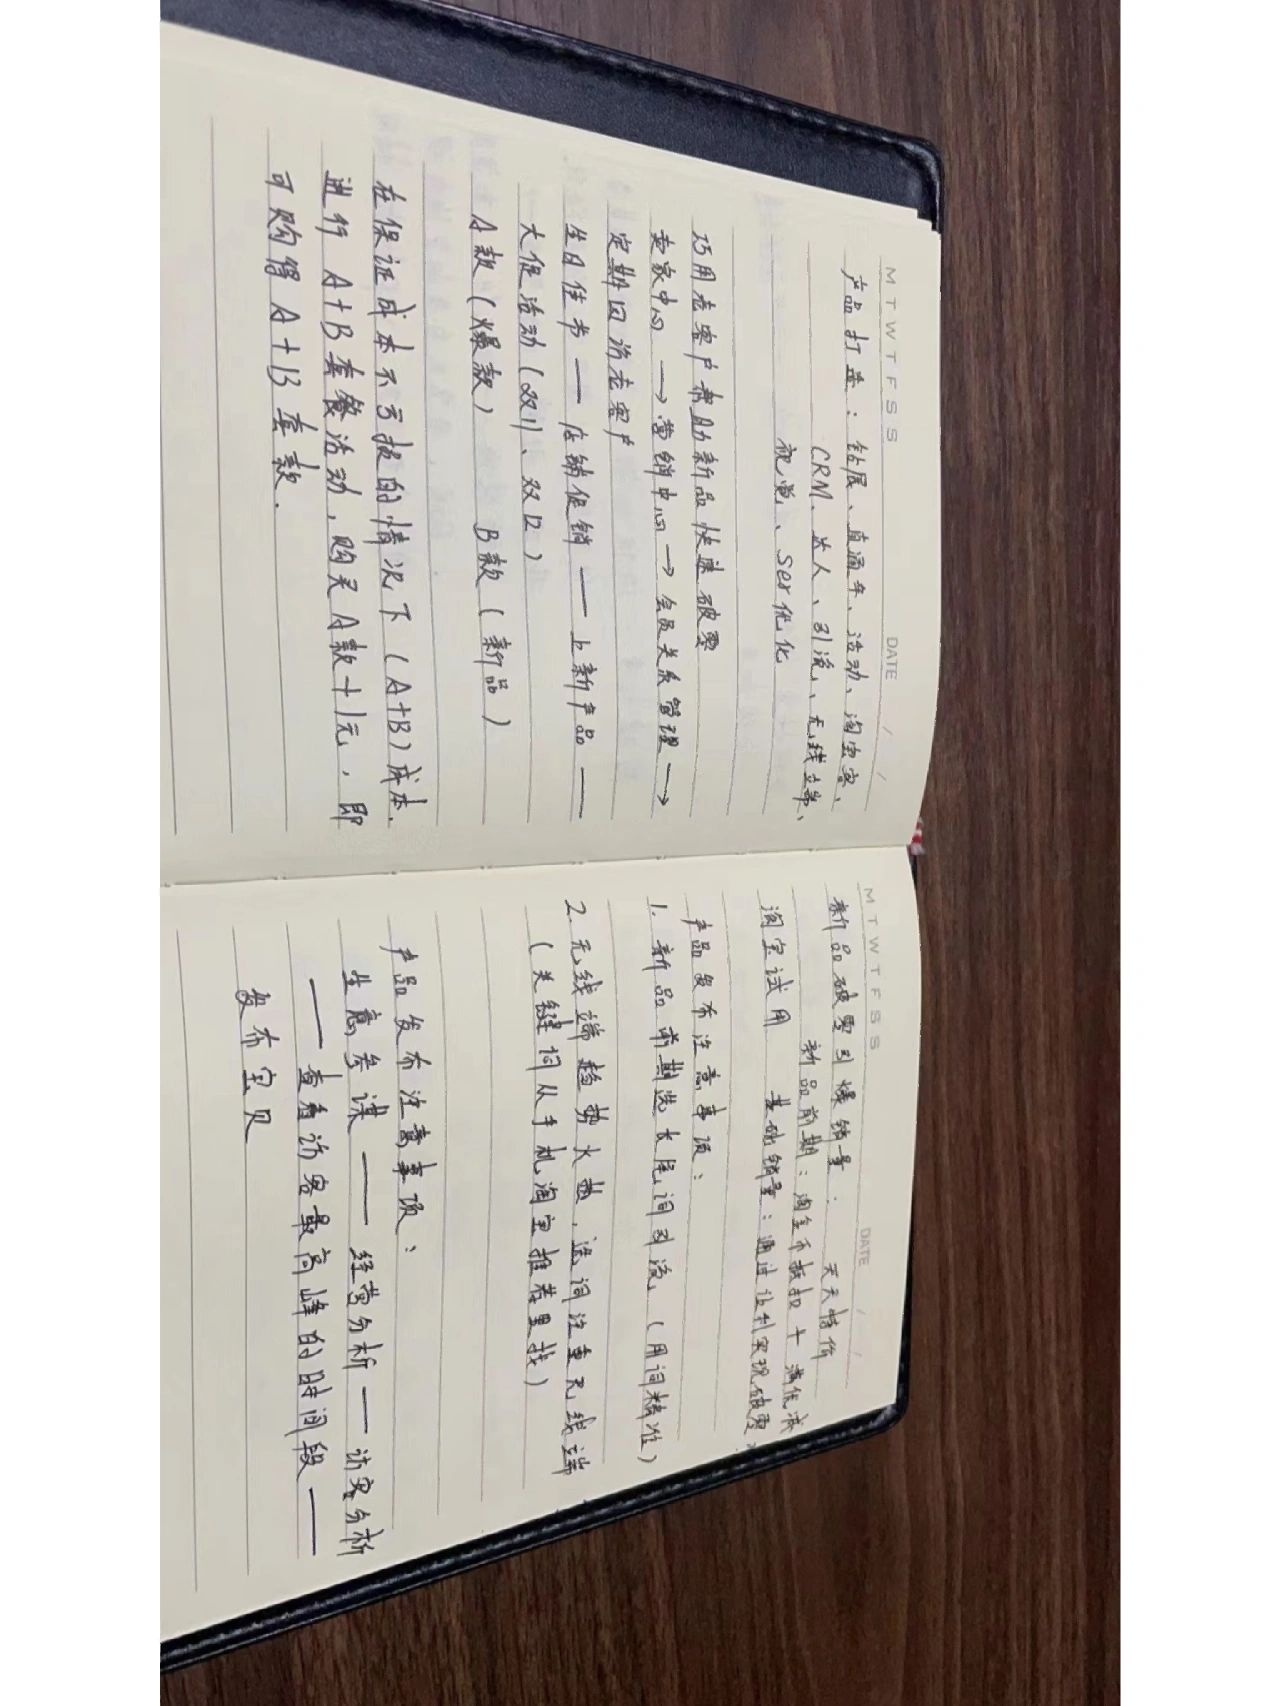 M T W T F S S
DATE / /
产品打造：钻展、直通车、活动、淘宝客、
CRM、达人、引流、无线端、
视觉、Ser优化
巧用老客户帮助新品快速破零
卖家中心 → 营销中心 → 会员关系管理 →
定期回访老客户
生日佳节 —— 店铺促销 —— 上新产品 ——
大促活动（双11、双12）
A款（爆款） B款（新品）
在保证成本不亏损的情况下（A+B）成本.
进行 A+B 套餐活动，购买A款+1元，即
可购得 A+B 套款.
M T W T F S S
DATE / /
新品破零引爆销量： 天天特价
新品前期：淘金币抵扣 + 满优减
淘宝试用 基础销量：通过让利实现破零
产品发布注意事项：
1. 新品前期选长尾词引流，（用词精准）
2. 无线端趋势火热，选词注重无线端
（关键词从手机淘宝推荐里找）
产品发布注意事项：
生意参谋 —— 经营分析 —— 访客分析
—— 查看访客最高峰的时间段 ——
发布宝贝